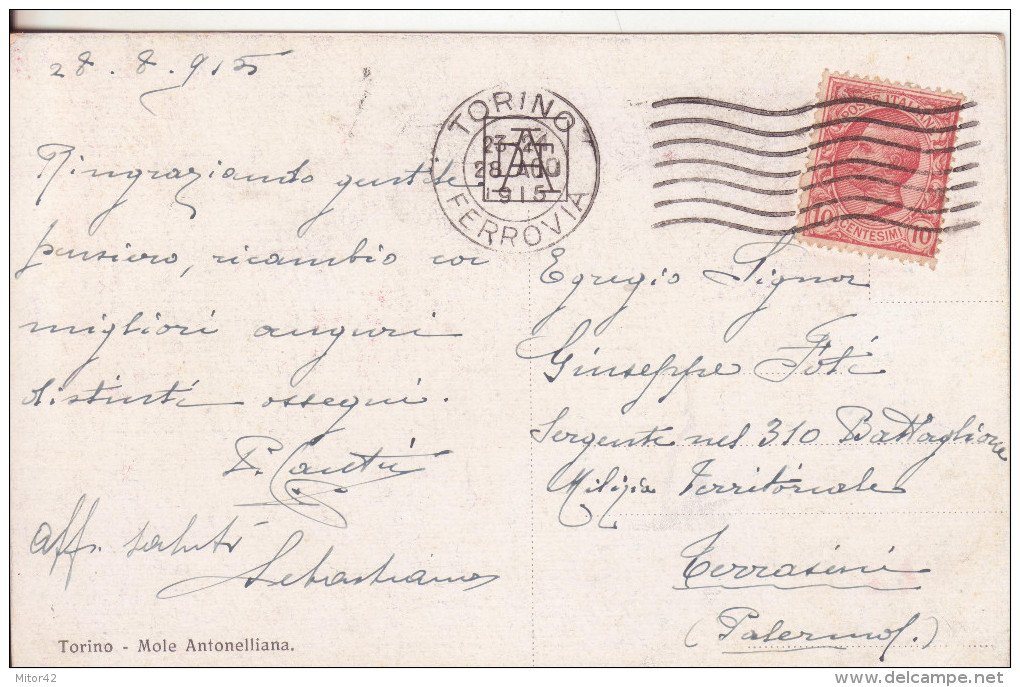 28.8.915
Ringraziando gentile
pensiero, ricambio coi
migliori auguri
distinti ossequi.
P. Cantù
aff. saluti
Sebastiano
Torino - Mole Antonelliana.
TORINO
23-24
28 AGO
1915
FERROVIA
POSTE ITALIANE
10 CENTESIMI 10
Egregio Signor
Giuseppe Foti
Sergente nel 310 Battaglione
Milizia Territoriale
Terrasini
(Palermo).
Mitor42
delcampe.net